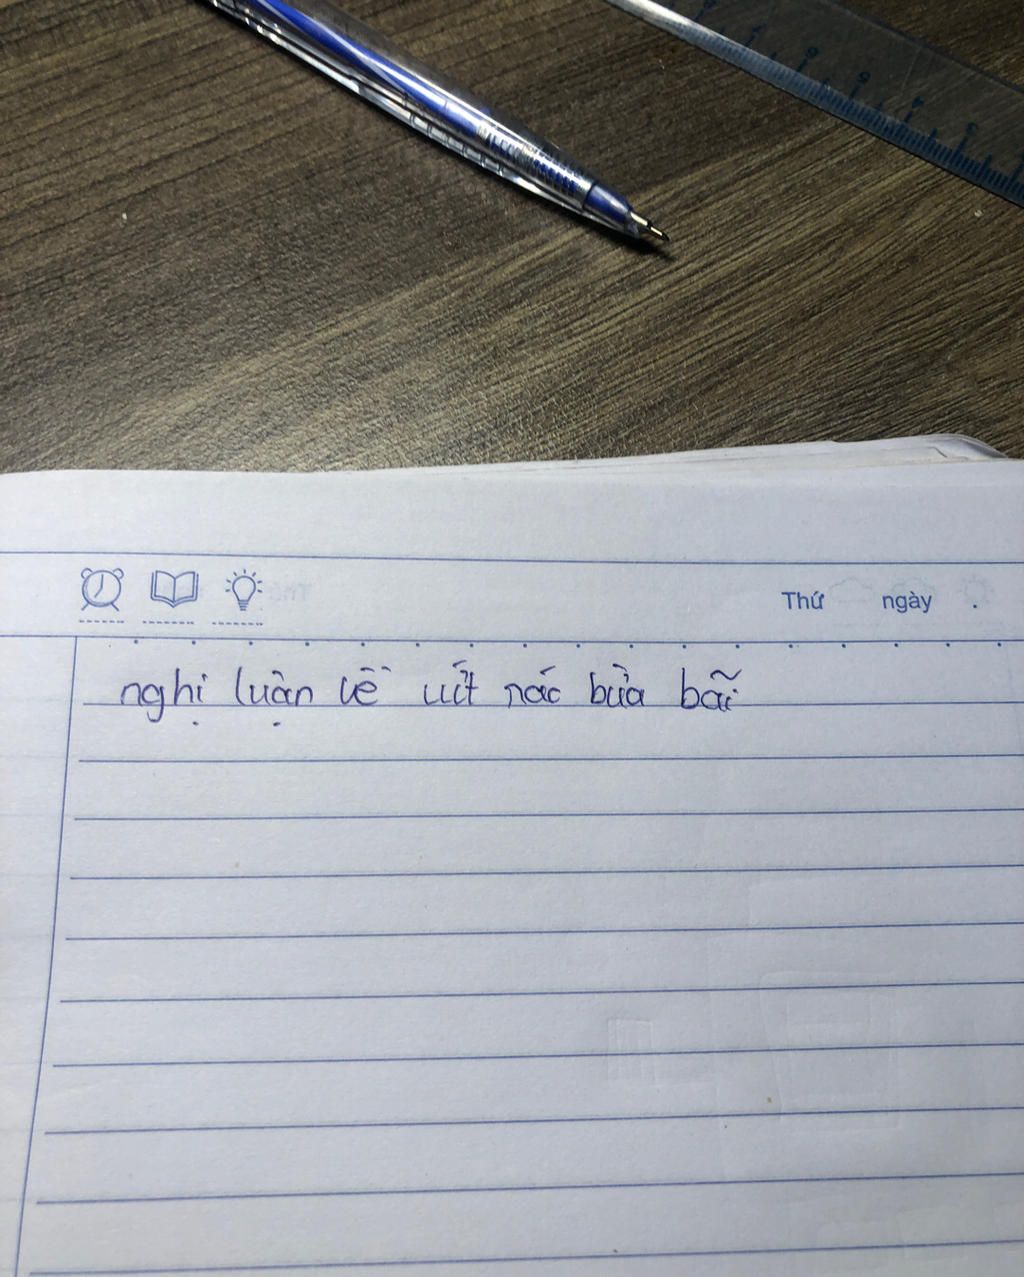 Thứ ngày .
nghị luận về vứt rác bừa bãi